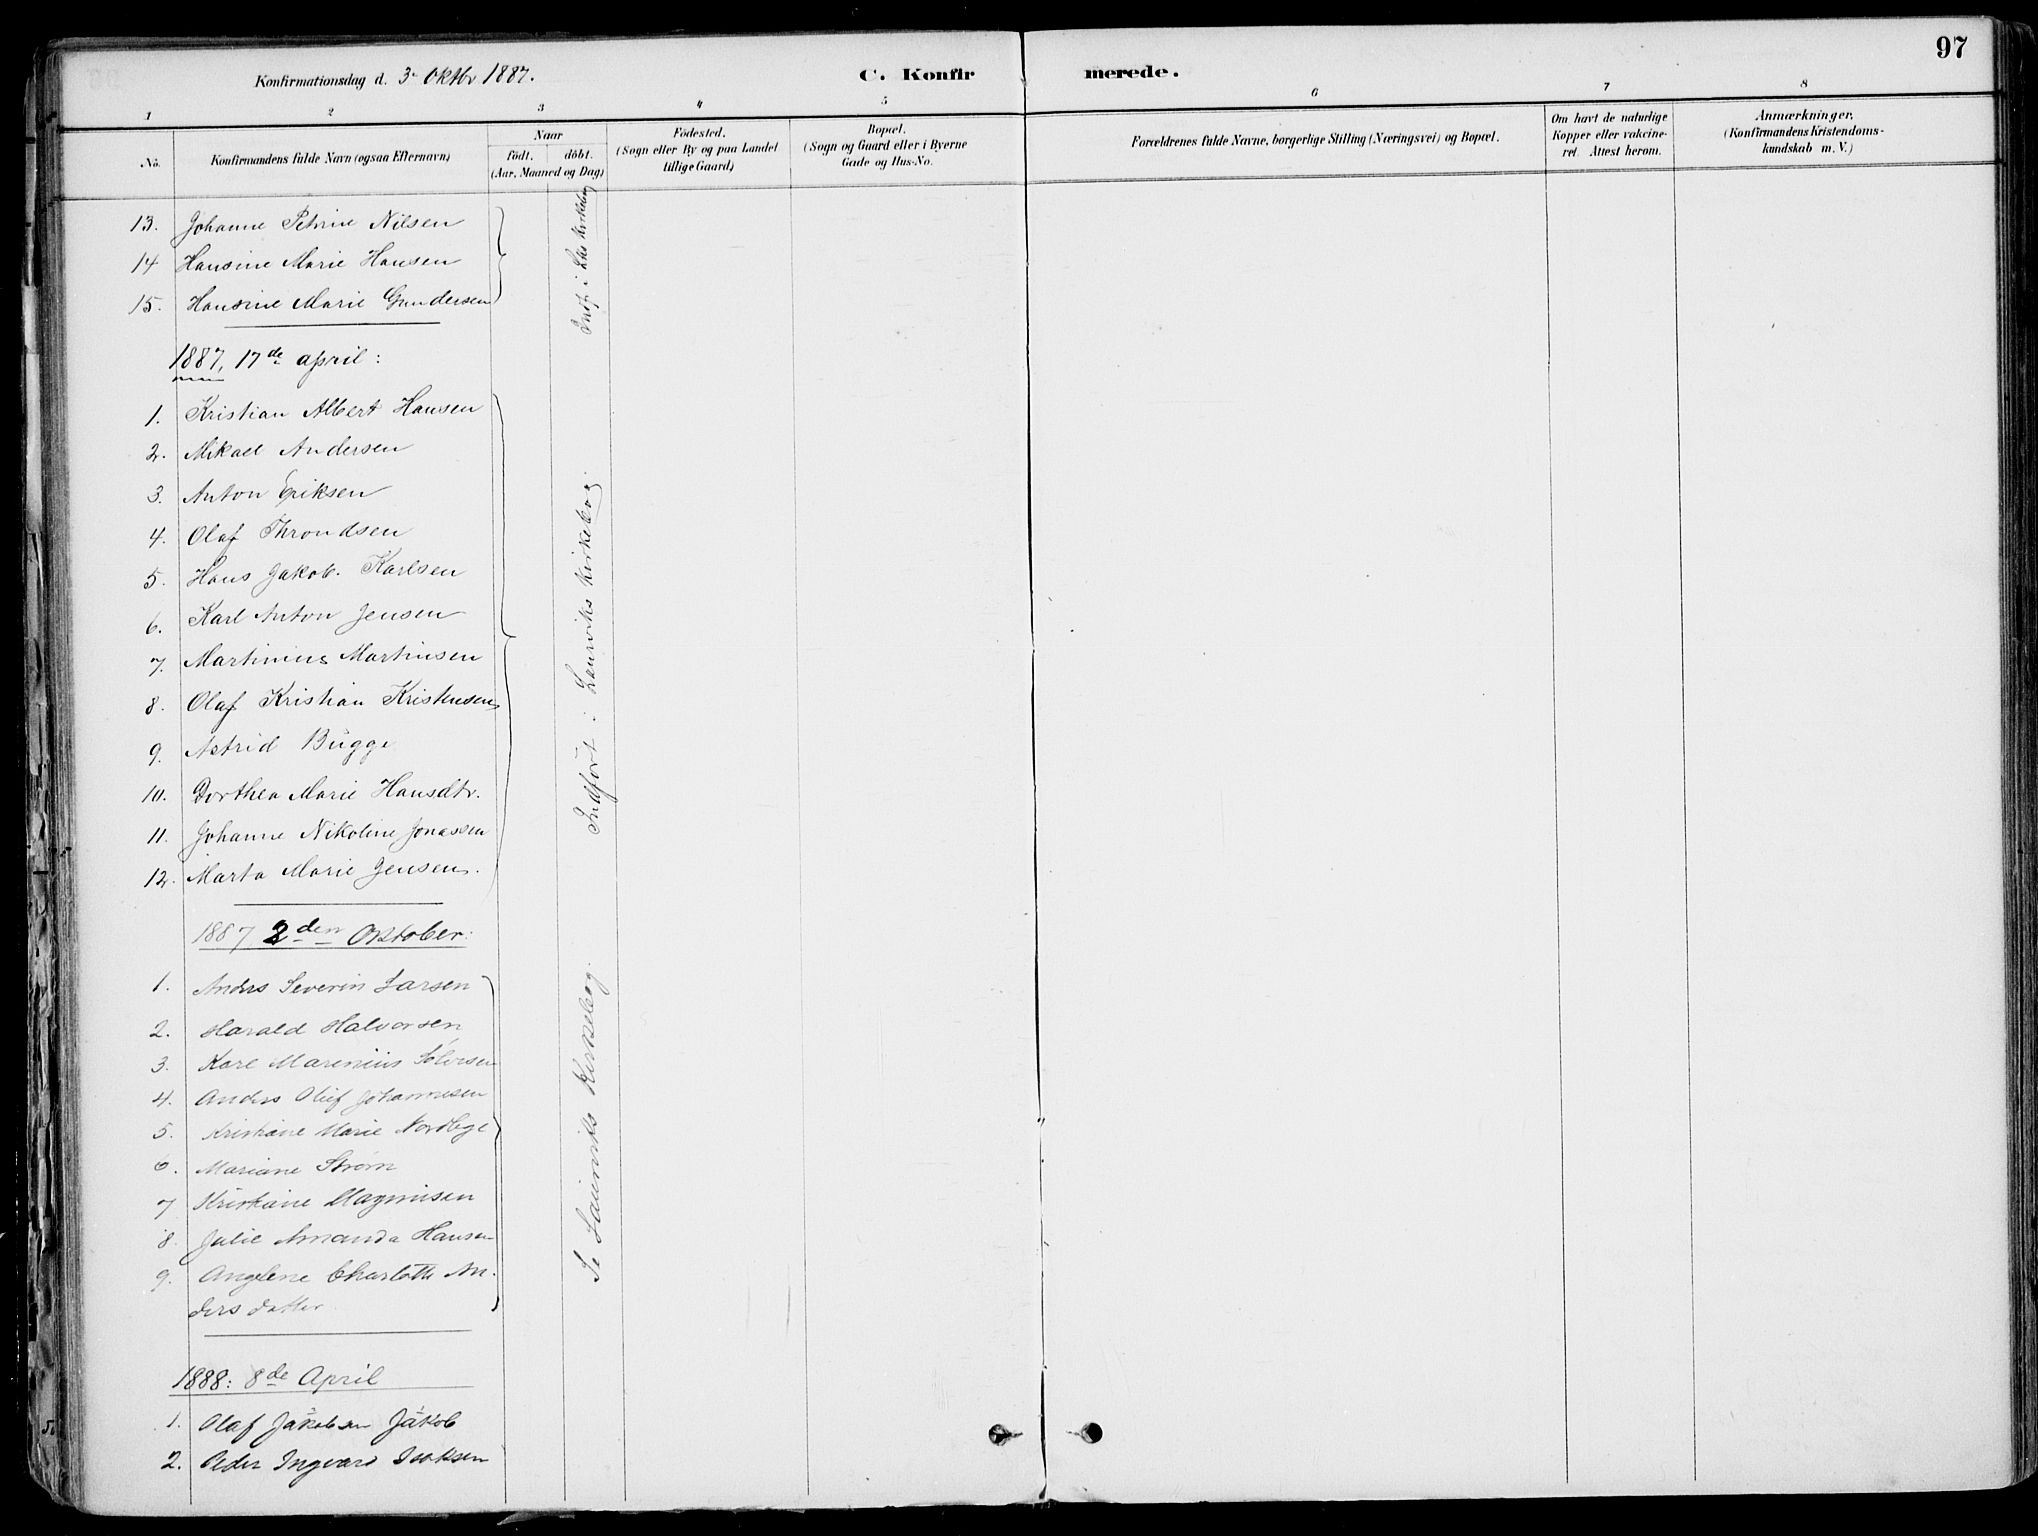 97
Konfirmationsdag d. 3. Oktbr 1887.
C. Konfirmerede.
1 2 3 4 5 6 7 8
No.
Konfirmandens fulde Navn (ogsaa Efternavn)
Naar
födt. döbt.
(Aar, Maaned og Dag)
Födested.
(Sogn eller By og paa Landet
tillige Gaard)
Bopæl.
(Sogn og Gaard eller i Byerne
Gade og Hus-No.
Forældrenes fulde Navne, borgerlige Stilling (Næringsvei) og Bopæl.
Om havt de naturlige
Kopper eller vakcine-
ret. Attest herom.
Anmærkninger,
(Konfirmandens Kristendoms-
kundskab m. V.)
13. Johanne Petrine Nilsen
14 Hansine Marie Hansen
15. Hansine Marie Gundersen
Indf. i Las Kirkebog
1887, 17de april:
1. Kristian Albert Hansen
2. Mikael Andersen
3. Anton Eriksen
4. Olaf Throndsen
5. Hans Jakob. Karlsen
6. Karl Anton Jensen
7. Martinius Martinsen
8. Olaf Kristian Kristensen
9. Astrid Bugge
10. Dorthea Marie Hansdtr.
11. Johanne Nikoline Jonassen
12. Marta Marie Jensen.
Indført i Laurviks Kirkebog.
1887 2den Oktober:
1. Anders Severin Larsen
2. Harald Halvorsen
3. Karl Marenius Sølvesen
4. Anders Oluf Johannesen
5. Kristiane Marie Nordbye
6. Mariane Strøm
7 Kristiane Magnusen
8. Julie Amanda Hansen
9. Angelene Charlotte An-
ders datter
Se Laurviks Kirkebog.
1888: 8de April
1. Olaf Jakobsen Jakob
2. Peder Ingvard Isaksen